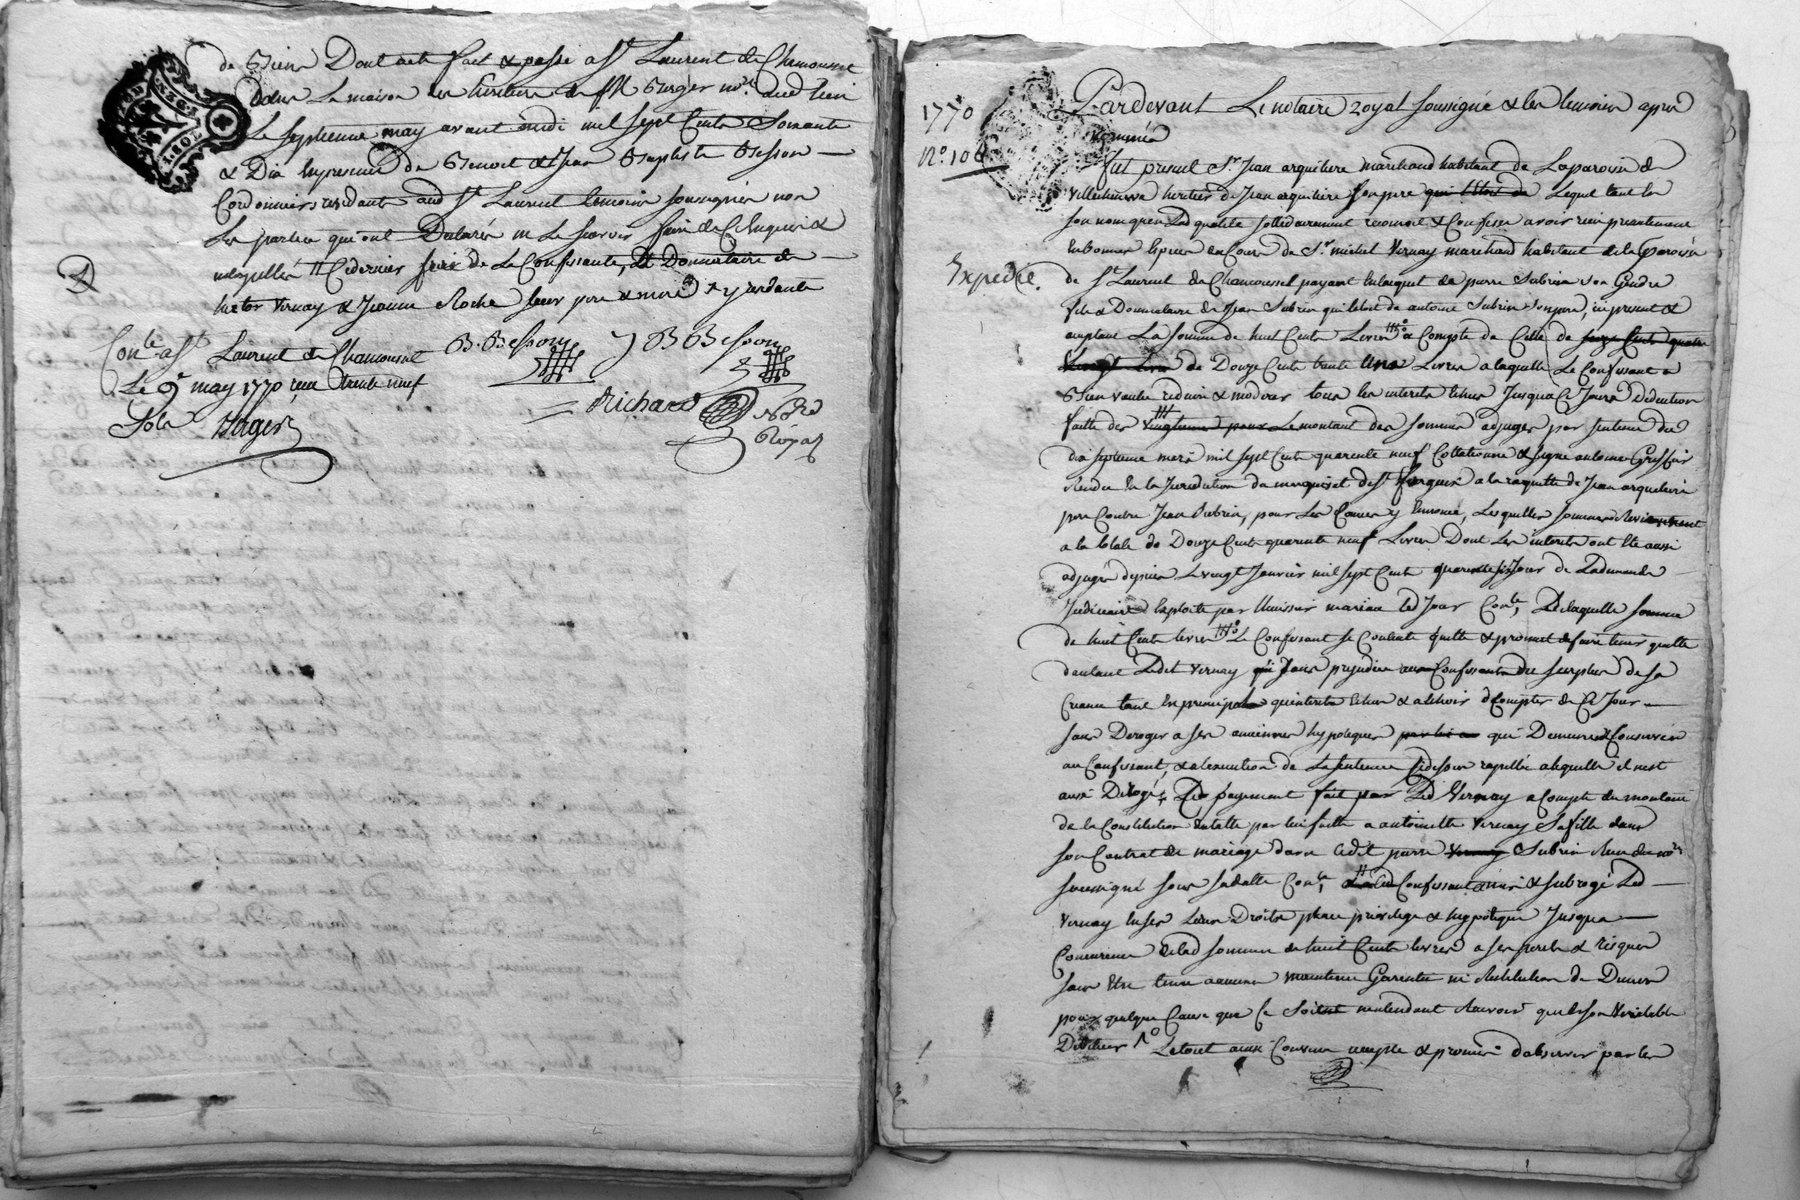 de Biens Dont acte fait & passé a St Laurent de Chamousset
dans La maison des heritiers de Me Berger nore. aud lieu
Le septieme may avant midi mil sept Cents Soixante
& Dix En presence de Benoit & Jean Baptiste Besson —
Cordonniers residants aud St Laurent temoins soussignés non
Les parties qui ont Declarés ne Le scavoir faire de Ce Enquis &
Cedernier de La Confessante, Donnataire de —
Vernay & Jeanne Roche Leurs pere & mere
Conlé a St Laurent de Chamousset
B. Besson J B Besson
Le 9e may 1770 recu trente neuf
sols Berger
Richard Nore
Royal
1770
No. 106
Expediée.
Pardevant Le notaire Royal soussigné & les temoins apres
nommés
fut present Sr. Jean arquiliere marchand habitant de La paroisse de
Villechenève heritier de Jean arquiliere son pere qui Etoit de Lequel tant en
son nom quen Lad qualité sollidairement reconnoit & Confesse avoir recu presentement
En bonnes Especes du Cours de Sr. michel Vernay marchand habitant de la paroisse
de St Laurent de Chamousset payant En lacquit de pierre Subrin son Gendre
fils & Donnataire de Jean Subrin qui Etoit de antoine Subrin son pere, ici present &
acceptant La somme de huit Cents Livres a Compte de Celle de
de Douze Cents trente Livres a laquelle Le Confessant a
Bien voulu reduire & moderer tous les interets Echus Jusqua Ce Jour Deduction
faitte des vingtiemes pour Le montant des sommes adjugés par sentence du
dix septieme mars mil sept Cents quarente neuf Collationné & signé antoine
Rendue En la Jurisdiction du marquisat de St forgeux a la requette de Jean arquiliere
pere Contre Jean Subrin, pour Les Causes y Enoncés, Lesquelles sommes
a la totale de Douze Cents quarente neuf Livres Dont Les interets ont Eté aussi
adjugés depuis Le vingt Janvier mil sept Cents quarente six Jour de La demande
Judiciaire Exploité par huissier led Jour Conlé, De laquelle somme
de huit Cents livres Le Confessant se Contente quitte & promet de faire tenir quitte
dautant Ledit Vernay sans prejudice au Confessant du surplus de sa
Creance tant En principal quinterets Echus & a Echoir a Compter de Ce Jour —
sans Deroger a ses anciennes hypoteques qui Demeurent Conservés
au Confessant, & a lexecution de La sentence Cidessus rapellée a laquelle il nest
aussi Derogé, Led payement fait par Led Vernay a Compte du montant
de la Constitution dottalle par lui faitte a antoinette Vernay sa fille dans
son Contrat de mariage avec Ledit pierre Subrin Recu du nore
soussigné sous sa datte Conlé, Confessant a mis & subrogé Led —
Vernay En ses Lieux Droits place privilege & hyppoteque Jusqua —
Concurrence de lad somme de huit Cents livres a ses perils & risques
sans Etre tenu aucune maintenue Garentie ni Restitution de Deniers
pour quelque Cause que Ce soit nentendant Recevoir que de son Veritable
Debiteur Letout ainsi Convenu accepté & promis dobserver par les